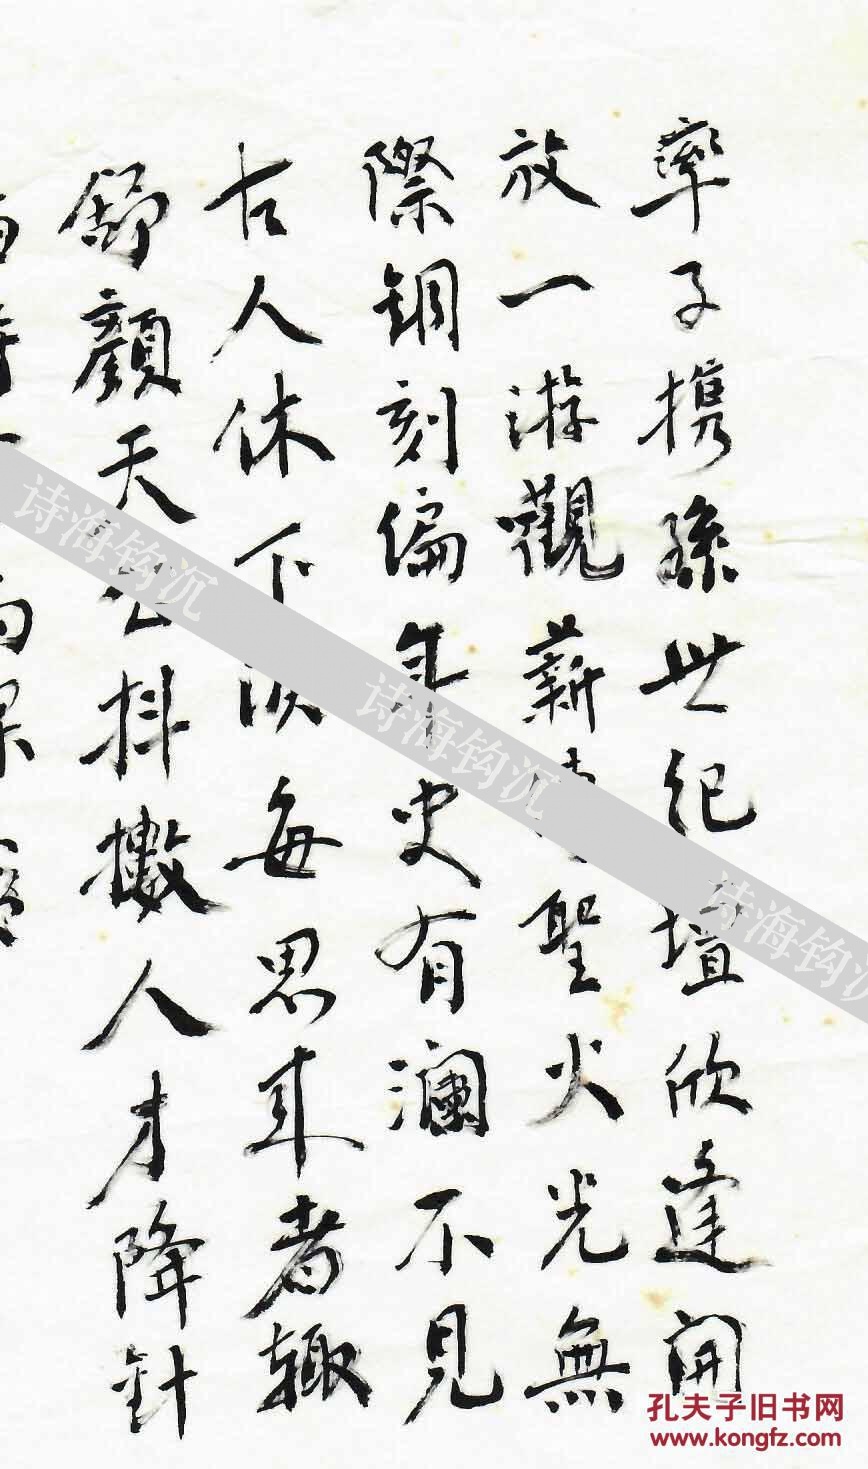 率子携孫世纪壇欣逢開
放一游觀薪傳聖火光無
際銅刻编年史有瀾不見
古人休下淚每思來者輒
舒顏天公抖擻人才降針
诗海钩沉
诗海钩沉
诗海钩沉
孔夫子旧书网
www.kongfz.com